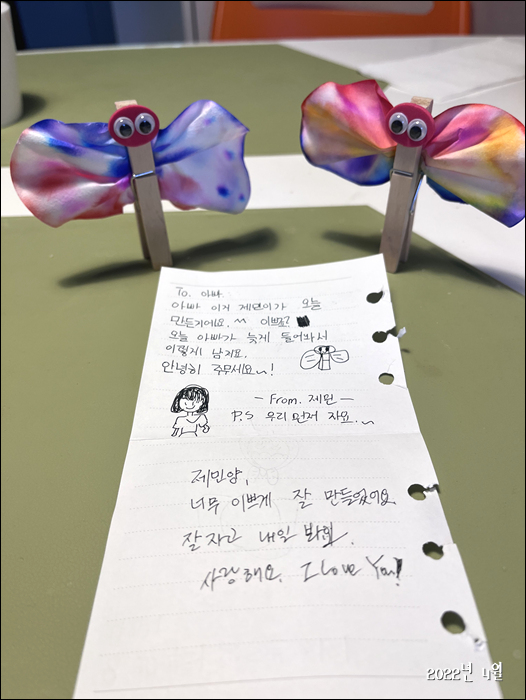 To. 아빠.
아빠 이거 제민이가 오늘
만든거에요. ^^ 이쁘죠?
오늘 아빠가 늦게 들어와서
이렇게 남겨요.
안녕히 주무세요~!
- From. 제민 -
P.S 우리 먼저 자요.~
제민양,
너무 이쁘게 잘 만들었어요.
잘 자고 내일 봐요.
사랑해요. I Love You!
2022년 4월